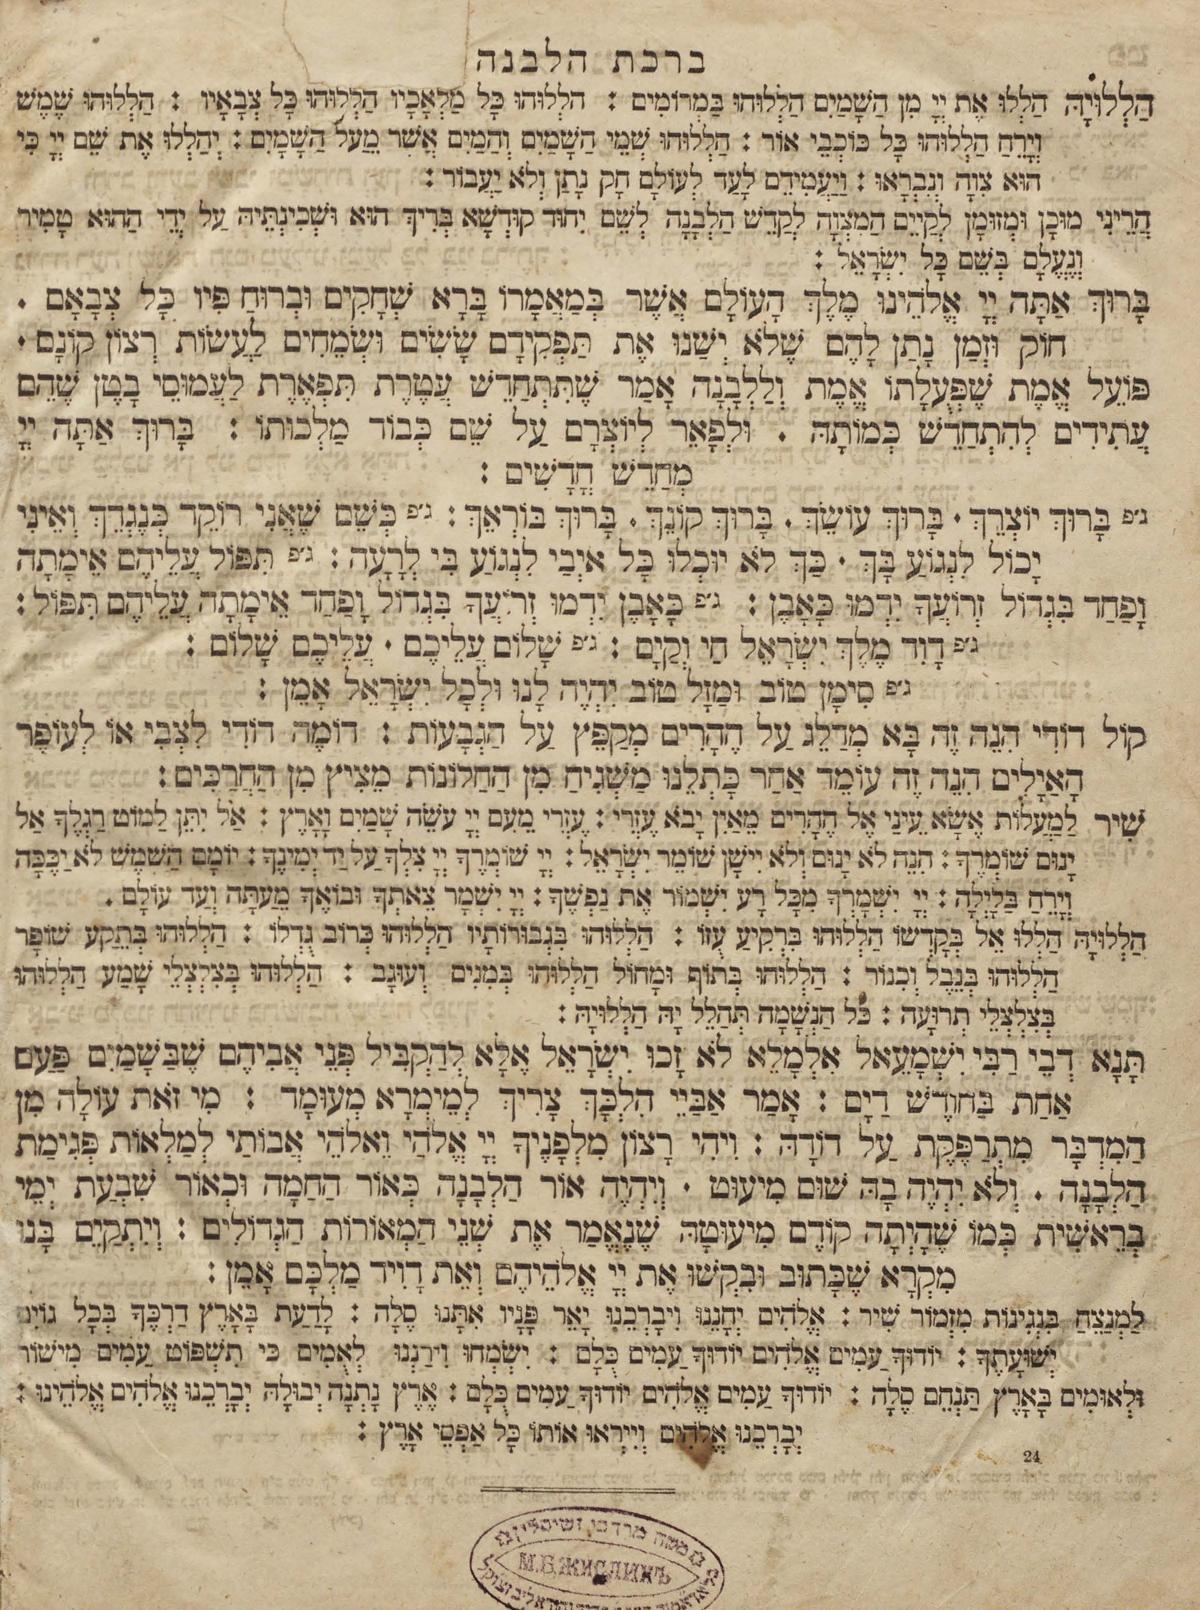 ברכת הלבנה
הַלְלוּיָהּ הַלְלוּ אֶת יְיָ מִן הַשָּׁמַיִם הַלְלוּהוּ בַּמְרוֹמִים : הַלְלוּהוּ כָּל מַלְאָכָיו הַלְלוּהוּ כָּל צְבָאָיו : הַלְלוּהוּ שֶׁמֶשׁ
וְיָרֵחַ הַלְלוּהוּ כָּל כּוֹכְבֵי אוֹר : הַלְלוּהוּ שְׁמֵי הַשָּׁמַיִם וְהַמַּיִם אֲשֶׁר מֵעַל הַשָּׁמָיִם : יְהַלְלוּ אֶת שֵׁם יְיָ כִּי
הוּא צִוָּה וְנִבְרָאוּ : וַיַּעֲמִידֵם לָעַד לְעוֹלָם חָק נָתַן וְלֹא יַעֲבוֹר :
הֲרֵינִי מוּכָן וּמְזוּמָן לְקַיֵּים הַמִּצְוָה לְקַדֵּשׁ הַלְּבָנָה לְשֵׁם יִחוּד קוּדְשָׁא בְּרִיךְ הוּא וּשְׁכִינְתֵּיהּ עַל יְדֵי הַהוּא טָמִיר
וְנֶעֱלָם בְּשֵׁם כָּל יִשְׂרָאֵל :
בָּרוּךְ אַתָּה יְיָ אֱלֹהֵינוּ מֶלֶךְ הָעוֹלָם אֲשֶׁר בְּמַאֲמָרוֹ בָּרָא שְׁחָקִים וּבְרוּחַ פִּיו כָּל צְבָאָם .
חוֹק וּזְמַן נָתַן לָהֶם שֶׁלֹּא יְשַׁנּוּ אֶת תַּפְקִידָם שָׂשִׂים וּשְׂמֵחִים לַעֲשׂוֹת רְצוֹן קוֹנָם ·
פּוֹעֵל אֱמֶת שֶׁפְּעֻלָּתוֹ אֱמֶת וְלַלְּבָנָה אָמַר שֶׁתִּתְחַדֵּשׁ עֲטֶרֶת תִּפְאֶרֶת לַעֲמוּסֵי בָטֶן שֶׁהֵם
עֲתִידִים לְהִתְחַדֵּשׁ כְּמוֹתָהּ . וּלְפָאֵר לְיוֹצְרָם עַל שֵׁם כְּבוֹד מַלְכוּתוֹ : בָּרוּךְ אַתָּה יְיָ
מְחַדֵּשׁ חֳדָשִׁים :
ג׳פ בָּרוּךְ יוֹצְרֵךְ · בָּרוּךְ עוֹשֵׂךְ . בָּרוּךְ קוֹנֵךְ . בָּרוּךְ בּוֹרְאֵךְ : ג׳פ כְּשֵׁם שֶׁאֲנִי רוֹקֵד כְּנֶגְדֵּךְ וְאֵינִי
יָכוֹל לִנְגּוֹעַ בָּךְ · כַּךְ לֹא יוּכְלוּ כָּל אוֹיְבַי לִנְגּוֹעַ בִּי לְרָעָה : ג׳פ תִּפּוֹל עֲלֵיהֶם אֵימָתָה
וָפַחַד בִּגְדוֹל זְרוֹעֲךָ יִדְּמוּ כָּאָבֶן : ג׳פ כָּאָבֶן יִדְּמוּ זְרוֹעֲךָ בִּגְדוֹל וָפַחַד אֵימָתָה עֲלֵיהֶם תִּפּוֹל :
ג׳פ דָּוִד מֶלֶךְ יִשְׂרָאֵל חַי וְקַיָּם : ג׳פ שָׁלוֹם עֲלֵיכֶם · עֲלֵיכֶם שָׁלוֹם :
ג׳פ סִימָן טוֹב וּמַזָּל טוֹב יִהְיֶה לָנוּ וּלְכָל יִשְׂרָאֵל אָמֵן :
קוֹל דּוֹדִי הִנֵּה זֶה בָּא מְדַלֵּג עַל הֶהָרִים מְקַפֵּץ עַל הַגְּבָעוֹת : דּוֹמֶה דוֹדִי לִצְבִי אוֹ לְעוֹפֶר
הָאַיָּלִים הִנֵּה זֶה עוֹמֵד אַחַר כָּתְלֵנוּ מַשְׁגִּיחַ מִן הַחַלּוֹנוֹת מֵצִיץ מִן הַחֲרַכִּים :
שִׁיר לַמַּעֲלוֹת אֶשָּׂא עֵינַי אֶל הֶהָרִים מֵאַיִן יָבֹא עֶזְרִי : עֶזְרִי מֵעִם יְיָ עֹשֵׂה שָׁמַיִם וָאָרֶץ : אַל יִתֵּן לַמּוֹט רַגְלֶךָ אַל
יָנוּם שׁוֹמְרֶךָ : הִנֵּה לֹא יָנוּם וְלֹא יִישָׁן שׁוֹמֵר יִשְׂרָאֵל : יְיָ שׁוֹמְרֶךָ יְיָ צִלְּךָ עַל יַד יְמִינֶךָ : יוֹמָם הַשֶּׁמֶשׁ לֹא יַכֶּכָּה
וְיָרֵחַ בַּלָּיְלָה : יְיָ יִשְׁמָרְךָ מִכָּל רָע יִשְׁמוֹר אֶת נַפְשֶׁךָ : יְיָ יִשְׁמָר צֵאתְךָ וּבוֹאֶךָ מֵעַתָּה וְעַד עוֹלָם .
הַלְלוּיָהּ הַלְלוּ אֵל בְּקָדְשׁוֹ הַלְלוּהוּ בִּרְקִיעַ עֻזּוֹ : הַלְלוּהוּ בִּגְבוּרוֹתָיו הַלְלוּהוּ כְּרוֹב גֻּדְלוֹ : הַלְלוּהוּ בְּתֵקַע שׁוֹפָר
הַלְלוּהוּ בְּנֵבֶל וְכִנּוֹר : הַלְלוּהוּ בְּתוֹף וּמָחוֹל הַלְלוּהוּ בְּמִנִּים וְעוּגָב : הַלְלוּהוּ בְּצִלְצְלֵי שָׁמַע הַלְלוּהוּ
בְּצִלְצְלֵי תְרוּעָה : כֹּל הַנְּשָׁמָה תְּהַלֵּל יָהּ הַלְלוּיָהּ :
תָּנָא דְבֵי רַבִּי יִשְׁמָעֵאל אִלְמָלֵא לֹא זָכוּ יִשְׂרָאֵל אֶלָּא לְהַקְבִּיל פְּנֵי אֲבִיהֶם שֶׁבַּשָּׁמַיִם פַּעַם
אַחַת בַּחוֹדֶשׁ דַּיָּם : אָמַר אַבַּיֵּי הִלְכָּךְ צָרִיךְ לְמֵימְרָא מְעוּמָד : מִי זֹאת עוֹלָה מִן
הַמִּדְבָּר מִתְרַפֶּקֶת עַל דּוֹדָהּ : וִיהִי רָצוֹן מִלְּפָנֶיךָ יְיָ אֱלֹהַי וֵאלֹהֵי אֲבוֹתַי לְמַלְאוֹת פְּגִימַת
הַלְּבָנָה . וְלֹא יִהְיֶה בָהּ שׁוּם מִיעוּט · וְיִהְיֶה אוֹר הַלְּבָנָה כְּאוֹר הַחַמָּה וּכְאוֹר שִׁבְעַת יְמֵי
בְּרֵאשִׁית כְּמוֹ שֶׁהָיְתָה קוֹדֶם מִיעוּטָהּ שֶׁנֶּאֱמַר אֶת שְׁנֵי הַמְּאוֹרוֹת הַגְּדוֹלִים : וְיִתְקַיֵּים בָּנוּ
מִקְרָא שֶׁכָּתוּב וּבִקְשׁוּ אֶת יְיָ אֱלֹהֵיהֶם וְאֵת דָּוִיד מַלְכָּם אָמֵן :
לַמְנַצֵּחַ בִּנְגִינוֹת מִזְמוֹר שִׁיר : אֱלֹהִים יְחָנֵּנוּ וִיבָרְכֵנוּ יָאֵר פָּנָיו אִתָּנוּ סֶלָה : לָדַעַת בָּאָרֶץ דַּרְכֶּךָ בְּכָל גּוֹיִם
יְשׁוּעָתֶךָ : יוֹדוּךָ עַמִּים אֱלֹהִים יוֹדוּךָ עַמִּים כֻּלָּם : יִשְׂמְחוּ וִירַנְּנוּ לְאֻמִּים כִּי תִשְׁפּוֹט עַמִּים מִישׁוֹר
וּלְאוּמִּים בָּאָרֶץ תַּנְחֵם סֶלָה : יוֹדוּךָ עַמִּים אֱלֹהִים יוֹדוּךָ עַמִּים כֻּלָּם : אֶרֶץ נָתְנָה יְבוּלָהּ יְבָרְכֵנוּ אֱלֹהִים אֱלֹהֵינוּ :
יְבָרְכֵנוּ אֱלֹהִים וְיִירְאוּ אוֹתוֹ כָּל אַפְסֵי אָרֶץ :
24
משה מרדכי זשיסלין
М.Б.ЖИСЛИНЪ